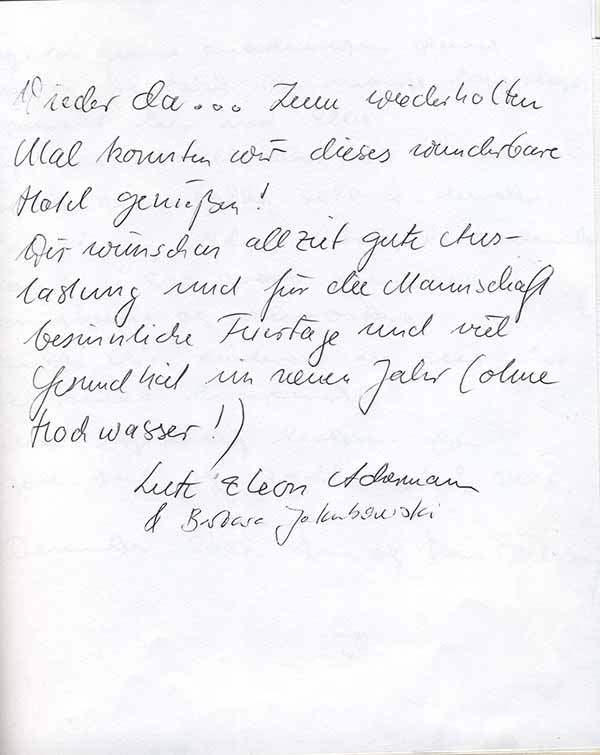 Wieder da... Zum wiederholten
Mal konnten wir dieses wunderbare
Hotel genießen!
Wir wünschen allzeit gute Aus-
lastung und für die Mannschaft
besinnliche Feiertage und viel
Gesundheit im neuen Jahr (ohne
Hochwasser!)
Lutz Ackermann
& Barbara Jakubowski